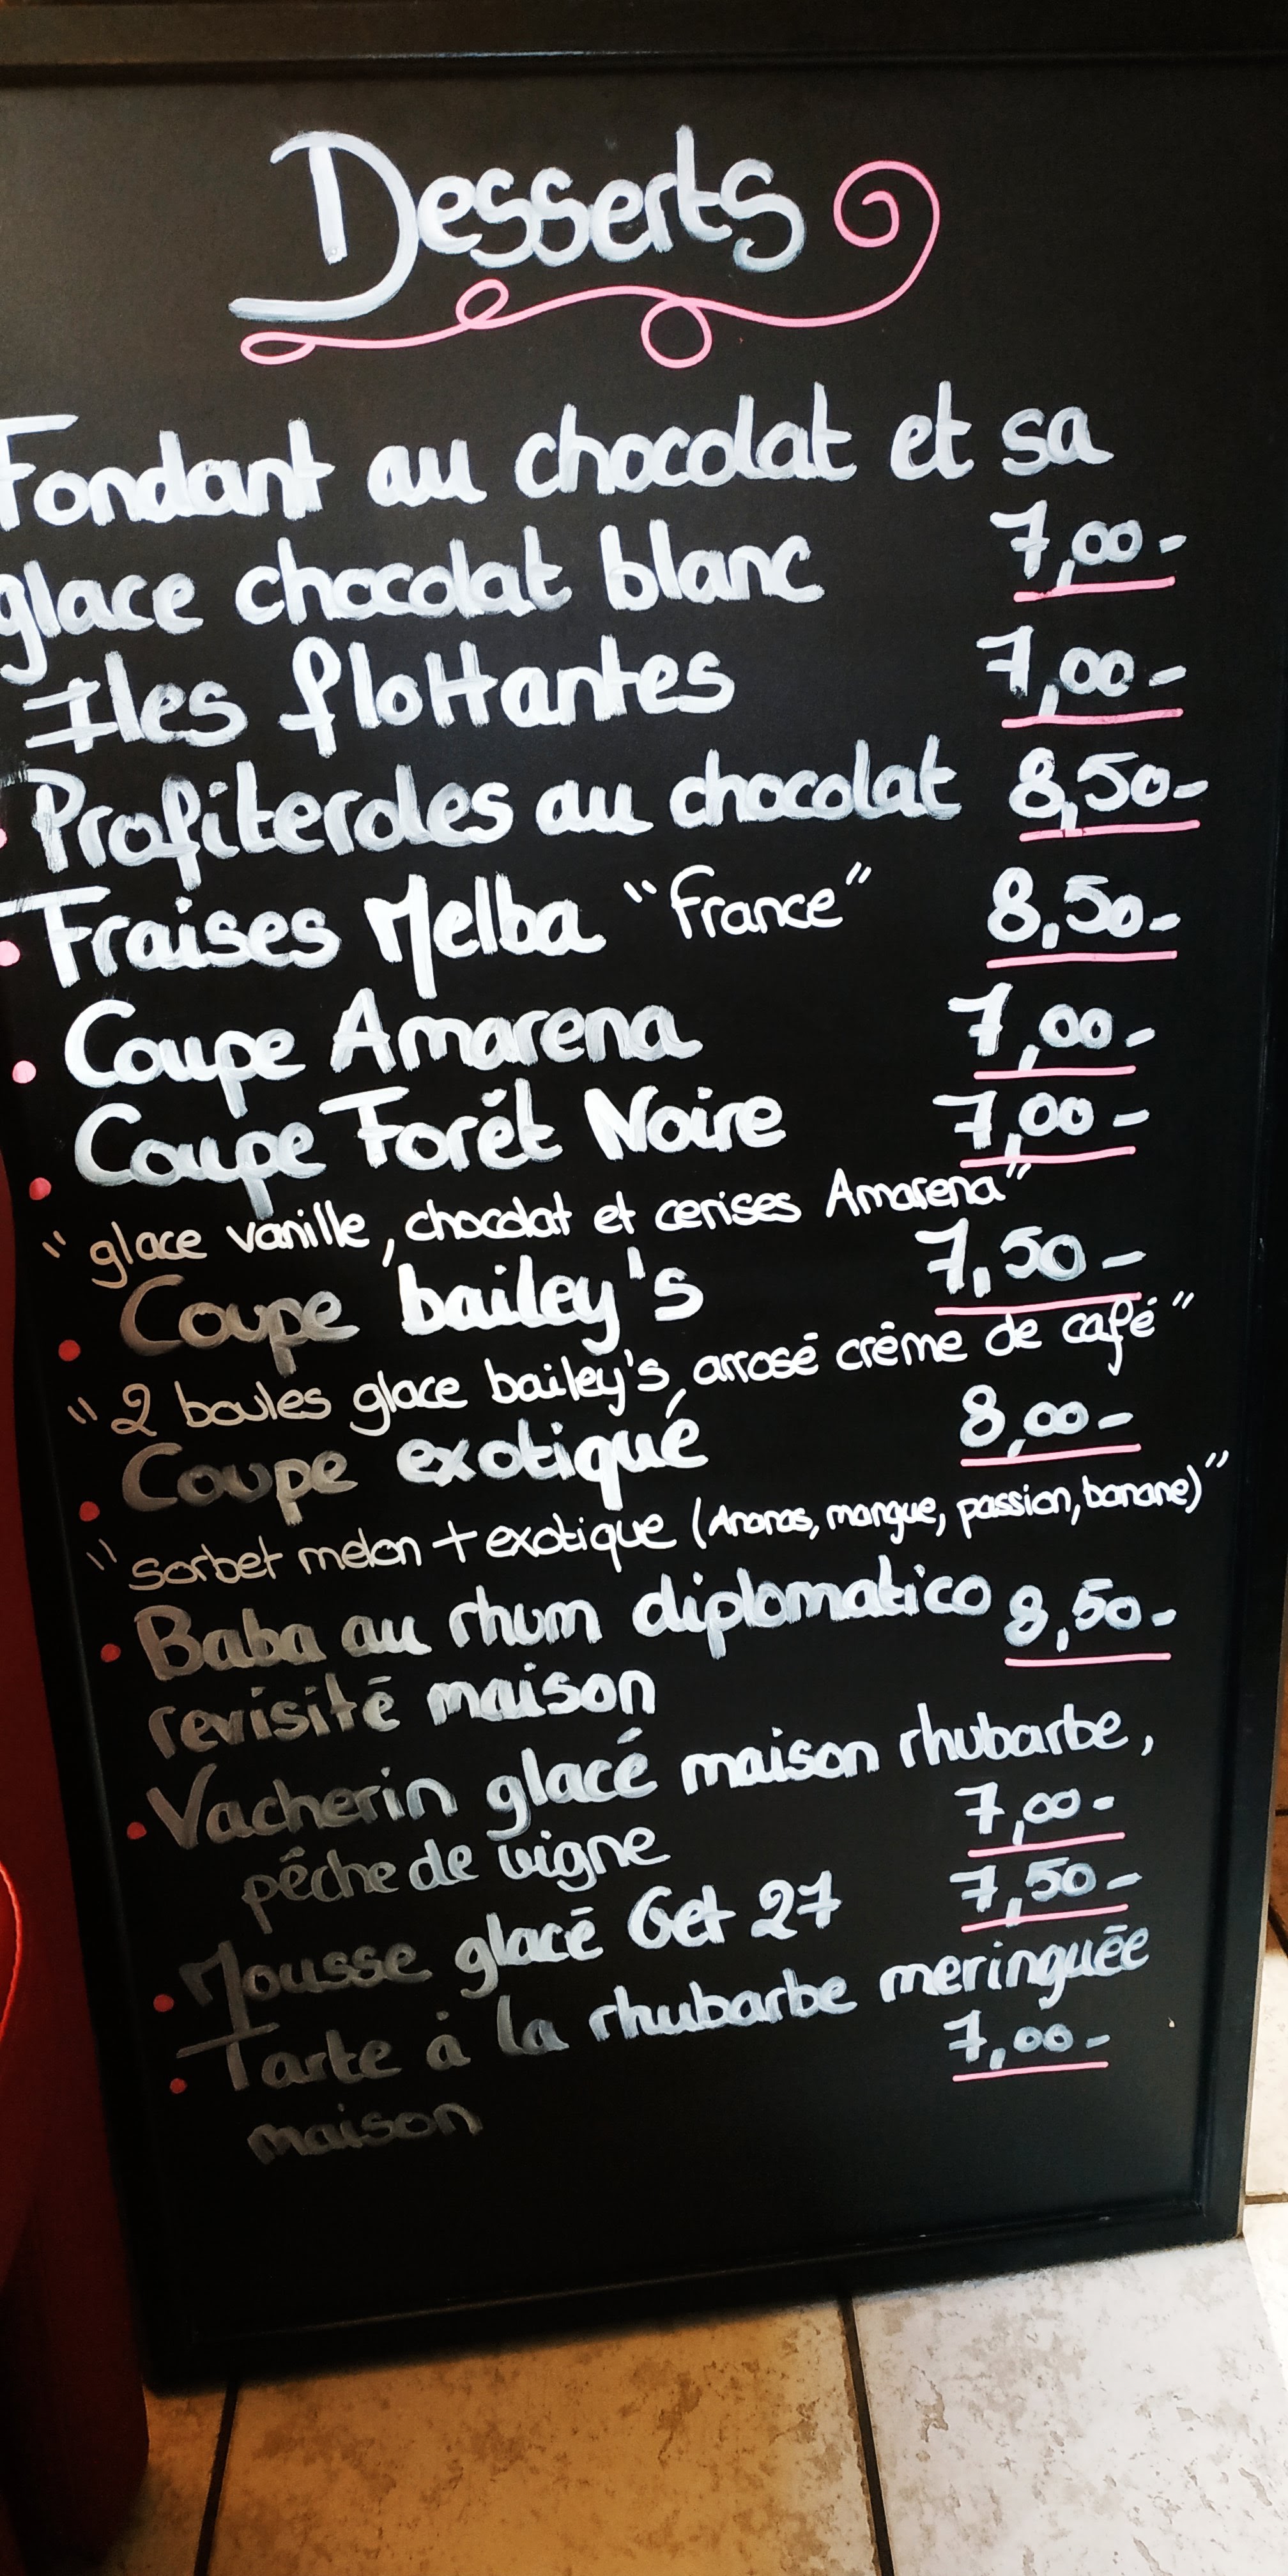 Desserts
Fondant au chocolat et sa
glace chocolat blanc 7,00-
Iles flottantes 7,00-
Profiteroles au chocolat 8,50-
Fraises Melba "france" 8,50-
Coupe Amarena 7,00-
Coupe Forêt Noire 7,00-
"glace vanille, chocolat et cerises Amarena"
Coupe bailey's 7,50-
"2 boules glace bailey's, arrosé crème de café"
Coupe exotiqué 8,00-
"sorbet melon + exotique (Ananas, mangue, passion, banane)"
Baba au rhum diplomatico 8,50-
revisité maison
Vacherin glacé maison rhubarbe,
pêche de vigne 7,00-
Mousse glacé Get 27 7,50-
Tarte à la rhubarbe meringuée
maison 7,00-